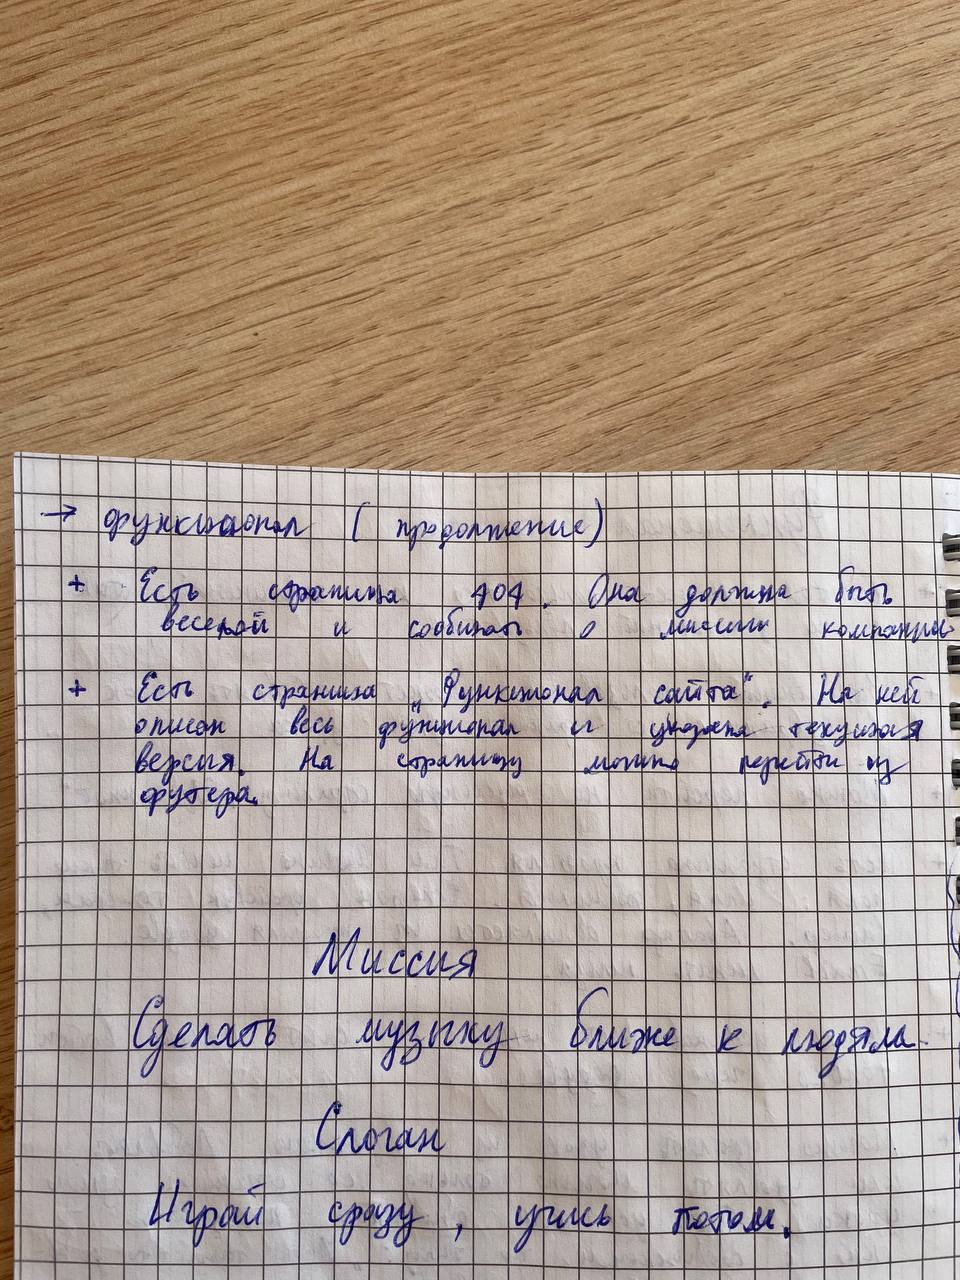 → функционал (продолжение)
+ Есть страница 404. Она должна быть
веселой и сообщать о миссии компании
+ Есть страница "Функционал сайта". На ней
описан весь функционал и указана текущая
версия. На страницу можно перейти из
футера.
Миссия
Сделать музыку ближе к людям.
Слоган
Играй сразу, учись потом.